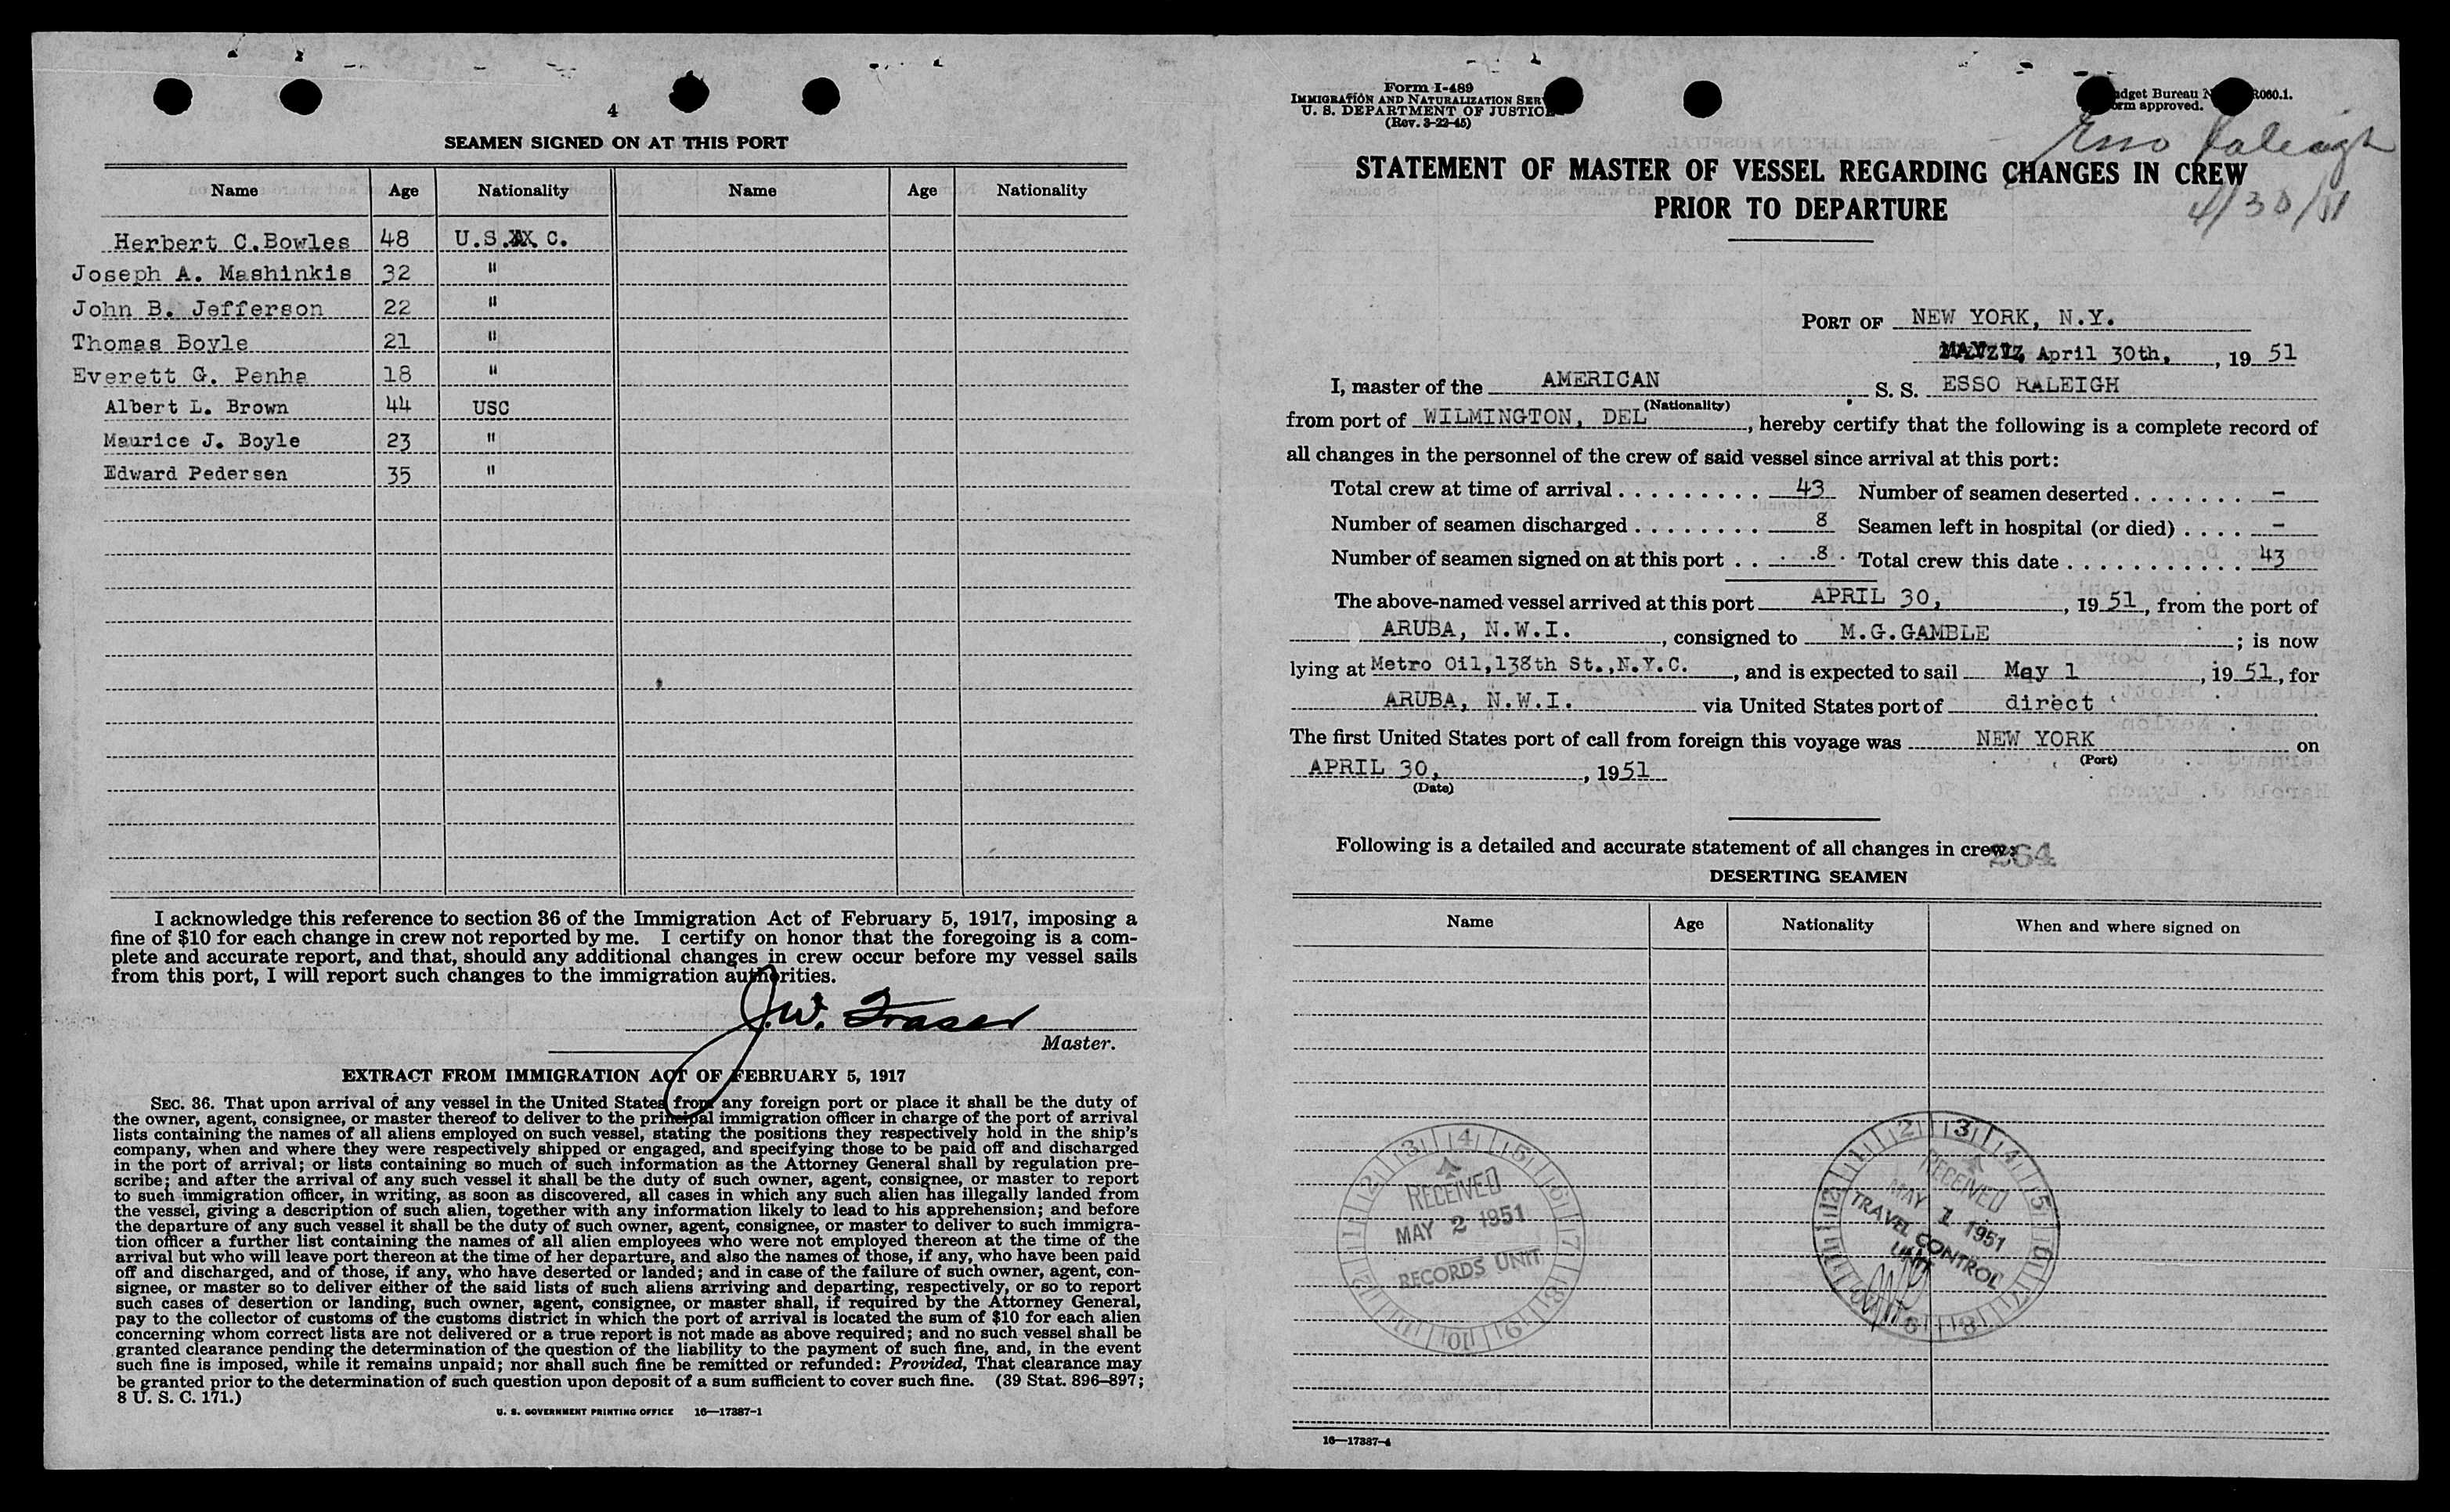 4
SEAMEN SIGNED ON AT THIS PORT
Name Age Nationality Name Age Nationality
Herbert C.Bowles 48 U.S. C.
Joseph A. Mashinkis 32 "
John B. Jefferson 22 "
Thomas Boyle 21 "
Everett G. Penha 18 "
Albert L. Brown 44 USC
Maurice J. Boyle 23 "
Edward Pedersen 35 "
I acknowledge this reference to section 36 of the Immigration Act of February 5, 1917, imposing a
fine of $10 for each change in crew not reported by me. I certify on honor that the foregoing is a com-
plete and accurate report, and that, should any additional changes in crew occur before my vessel sails
from this port, I will report such changes to the immigration authorities.
J.W. Fraser
Master.
EXTRACT FROM IMMIGRATION ACT OF FEBRUARY 5, 1917
SEC. 36. That upon arrival of any vessel in the United States from any foreign port or place it shall be the duty of
the owner, agent, consignee, or master thereof to deliver to the principal immigration officer in charge of the port of arrival
lists containing the names of all aliens employed on such vessel, stating the positions they respectively hold in the ship's
company, when and where they were respectively shipped or engaged, and specifying those to be paid off and discharged
in the port of arrival; or lists containing so much of such information as the Attorney General shall by regulation pre-
scribe; and after the arrival of any such vessel it shall be the duty of such owner, agent, consignee, or master to report
to such immigration officer, in writing, as soon as discovered, all cases in which any such alien has illegally landed from
the vessel, giving a description of such alien, together with any information likely to lead to his apprehension; and before
the departure of any such vessel it shall be the duty of such owner, agent, consignee, or master to deliver to such immigra-
tion officer a further list containing the names of all alien employees who were not employed thereon at the time of the
arrival but who will leave port thereon at the time of her departure, and also the names of those, if any, who have been paid
off and discharged, and of those, if any, who have deserted or landed; and in case of the failure of such owner, agent, con-
signee, or master so to deliver either of the said lists of such aliens arriving and departing, respectively, or so to report
such cases of desertion or landing, such owner, agent, consignee, or master shall, if required by the Attorney General,
pay to the collector of customs of the customs district in which the port of arrival is located the sum of $10 for each alien
concerning whom correct lists are not delivered or a true report is not made as above required; and no such vessel shall be
granted clearance pending the determination of the question of the liability to the payment of such fine, and, in the event
such fine is imposed, while it remains unpaid; nor shall such fine be remitted or refunded: Provided, That clearance may
be granted prior to the determination of such question upon deposit of a sum sufficient to cover such fine. (39 Stat. 896–897;
8 U. S. C. 171.)
U. S. GOVERNMENT PRINTING OFFICE 16—17387-1
Form I-489
IMMIGRATION AND NATURALIZATION SER
U. S. DEPARTMENT OF JUSTICE
(Rev. 3-22-45)
dget Bureau N R060.1.
orm approved.
Esso Raleigh
4/30/51
STATEMENT OF MASTER OF VESSEL REGARDING CHANGES IN CREW
PRIOR TO DEPARTURE
PORT OF NEW YORK, N.Y.
April 30th, , 19 51
I, master of the AMERICAN S. S. ESSO RALEIGH
(Nationality)
from port of WILMINGTON, DEL , hereby certify that the following is a complete record of
all changes in the personnel of the crew of said vessel since arrival at this port:
Total crew at time of arrival . . . . . . . . . 43 Number of seamen deserted . . . . . . . –
Number of seamen discharged . . . . . . . . 8 Seamen left in hospital (or died) . . . . –
Number of seamen signed on at this port . . 8 Total crew this date . . . . . . . . . . . 43
The above-named vessel arrived at this port APRIL 30, , 19 51, from the port of
ARUBA, N.W.I. , consigned to M.G.GAMBLE ; is now
lying at Metro Oil,138th St.,N.Y.C. , and is expected to sail May 1 , 19 51, for
ARUBA, N.W.I. via United States port of direct
The first United States port of call from foreign this voyage was NEW YORK on
(Port)
APRIL 30, , 1951
(Date)
Following is a detailed and accurate statement of all changes in crew:
264
DESERTING SEAMEN
Name Age Nationality When and where signed on
RECEIVED
MAY 2 1951
RECORDS UNIT
RECEIVED
MAY 1 1951
TRAVEL CONTROL
UNIT
16—17387-4